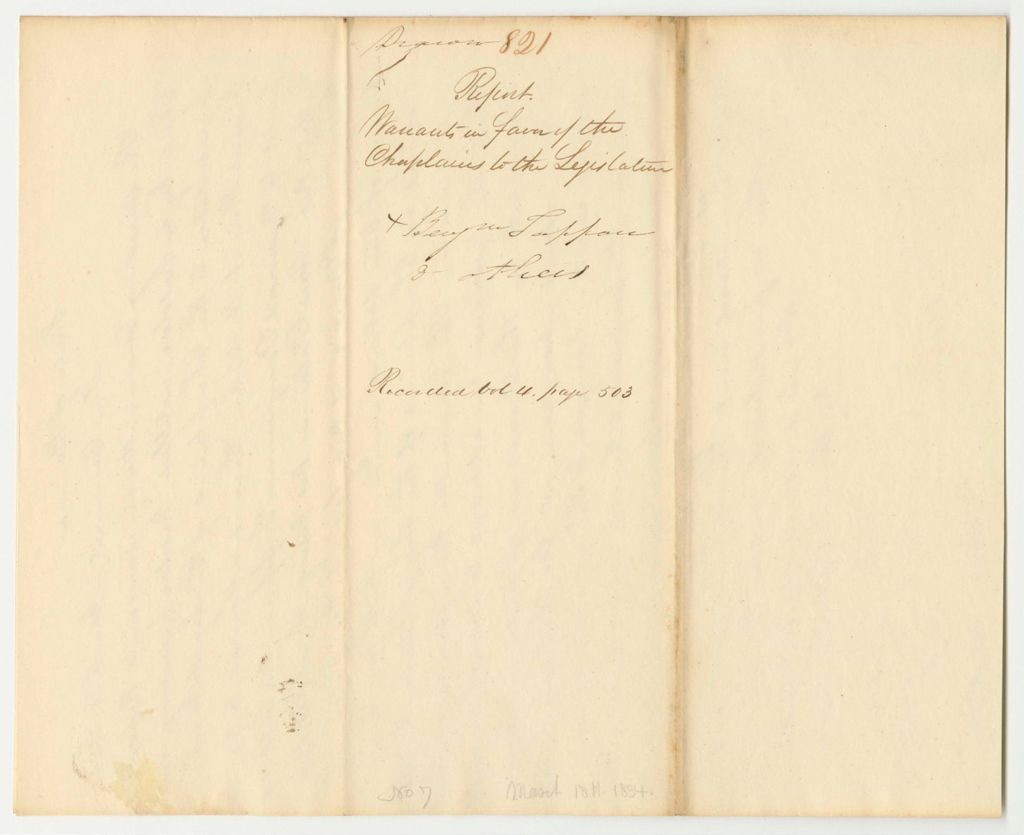 821
Report.
Warrants in favor of the
Chaplains to the Legislature
+ Benj m Tappan
& others
Recorded Vol 4. page 503
No 7
March 18th 1834.